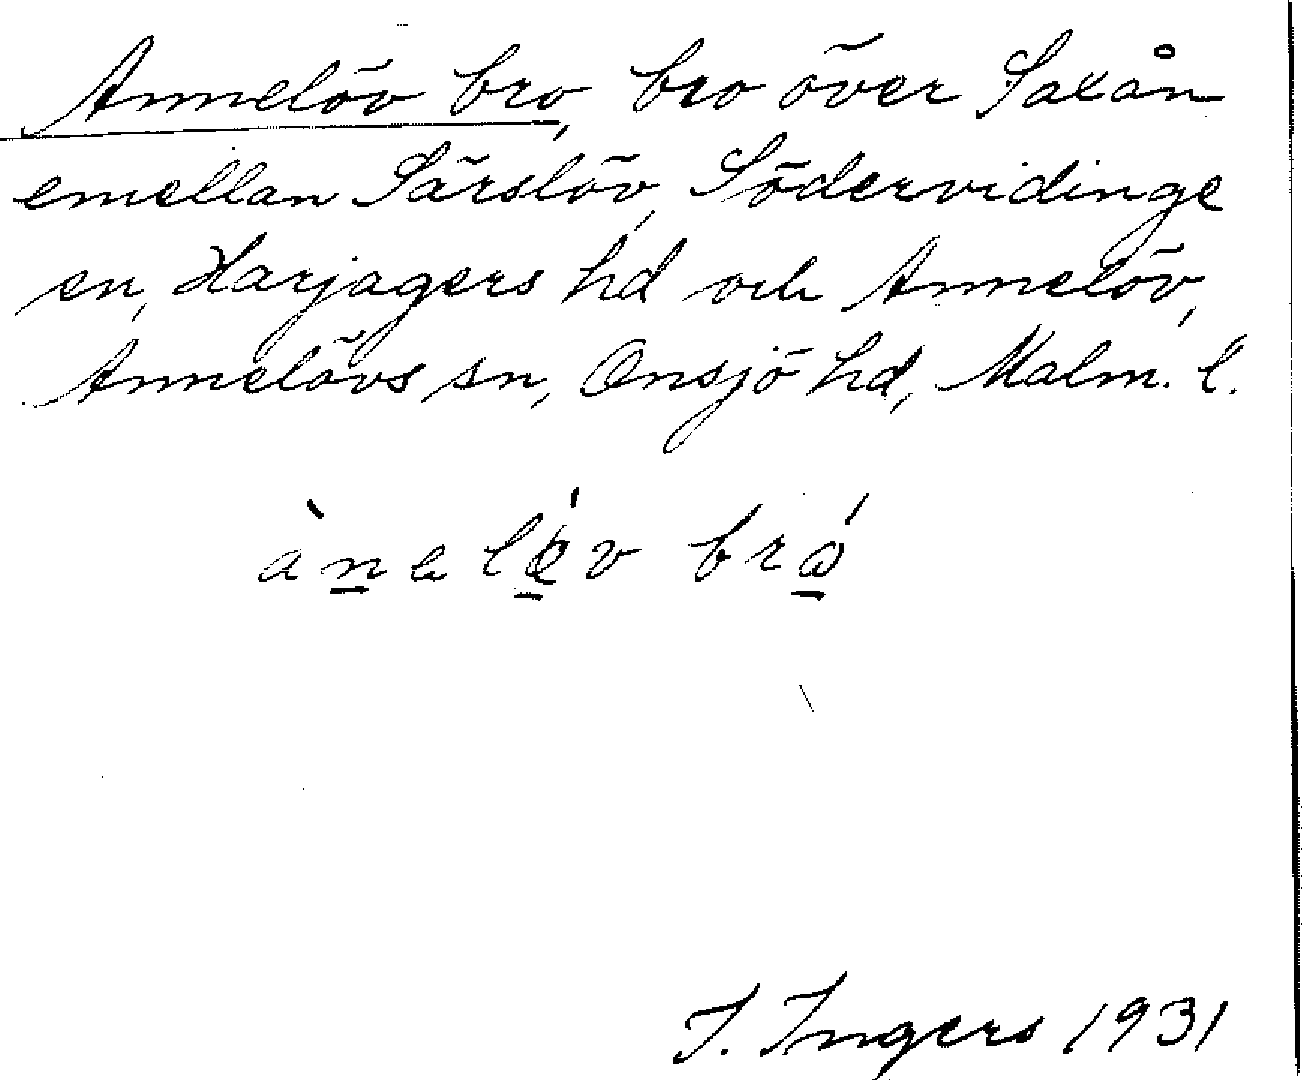 Annelöv bro, bro över Saxån
emellan Särslöv, Södervidinge
sn, Harjagers hd och Annelöv,
Annelövs sn, Onsjö hd, Malm. l.
bró
I. Ingers 1931